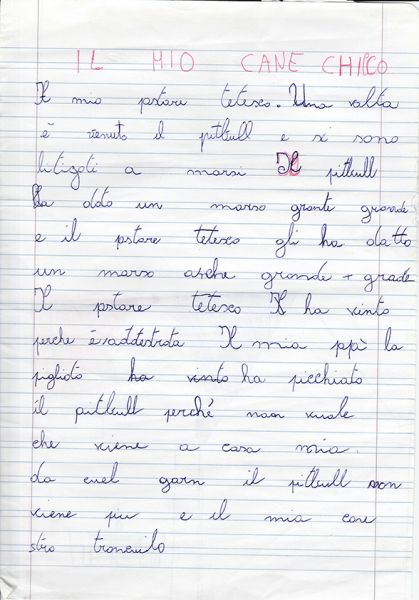 IL MIO CANE CHICCO
Il mio pstore tetesco. Una valta
è venuto il pitbull e si sono
litigati a morsi Il pitbull
ha dato un morso grante grande
e il pstore tetesco gli ha datto
un morso asche grande + grade
Il pstore tetesco Il ha vinto
perche è addestrato Il mia ppà la
pigliato ha vinto ha picchiato
il pitbull perché non vuole
che viene a casa mia.
da cuel garn il pitbull non
viene piu e il mia cane
stro troncuilo